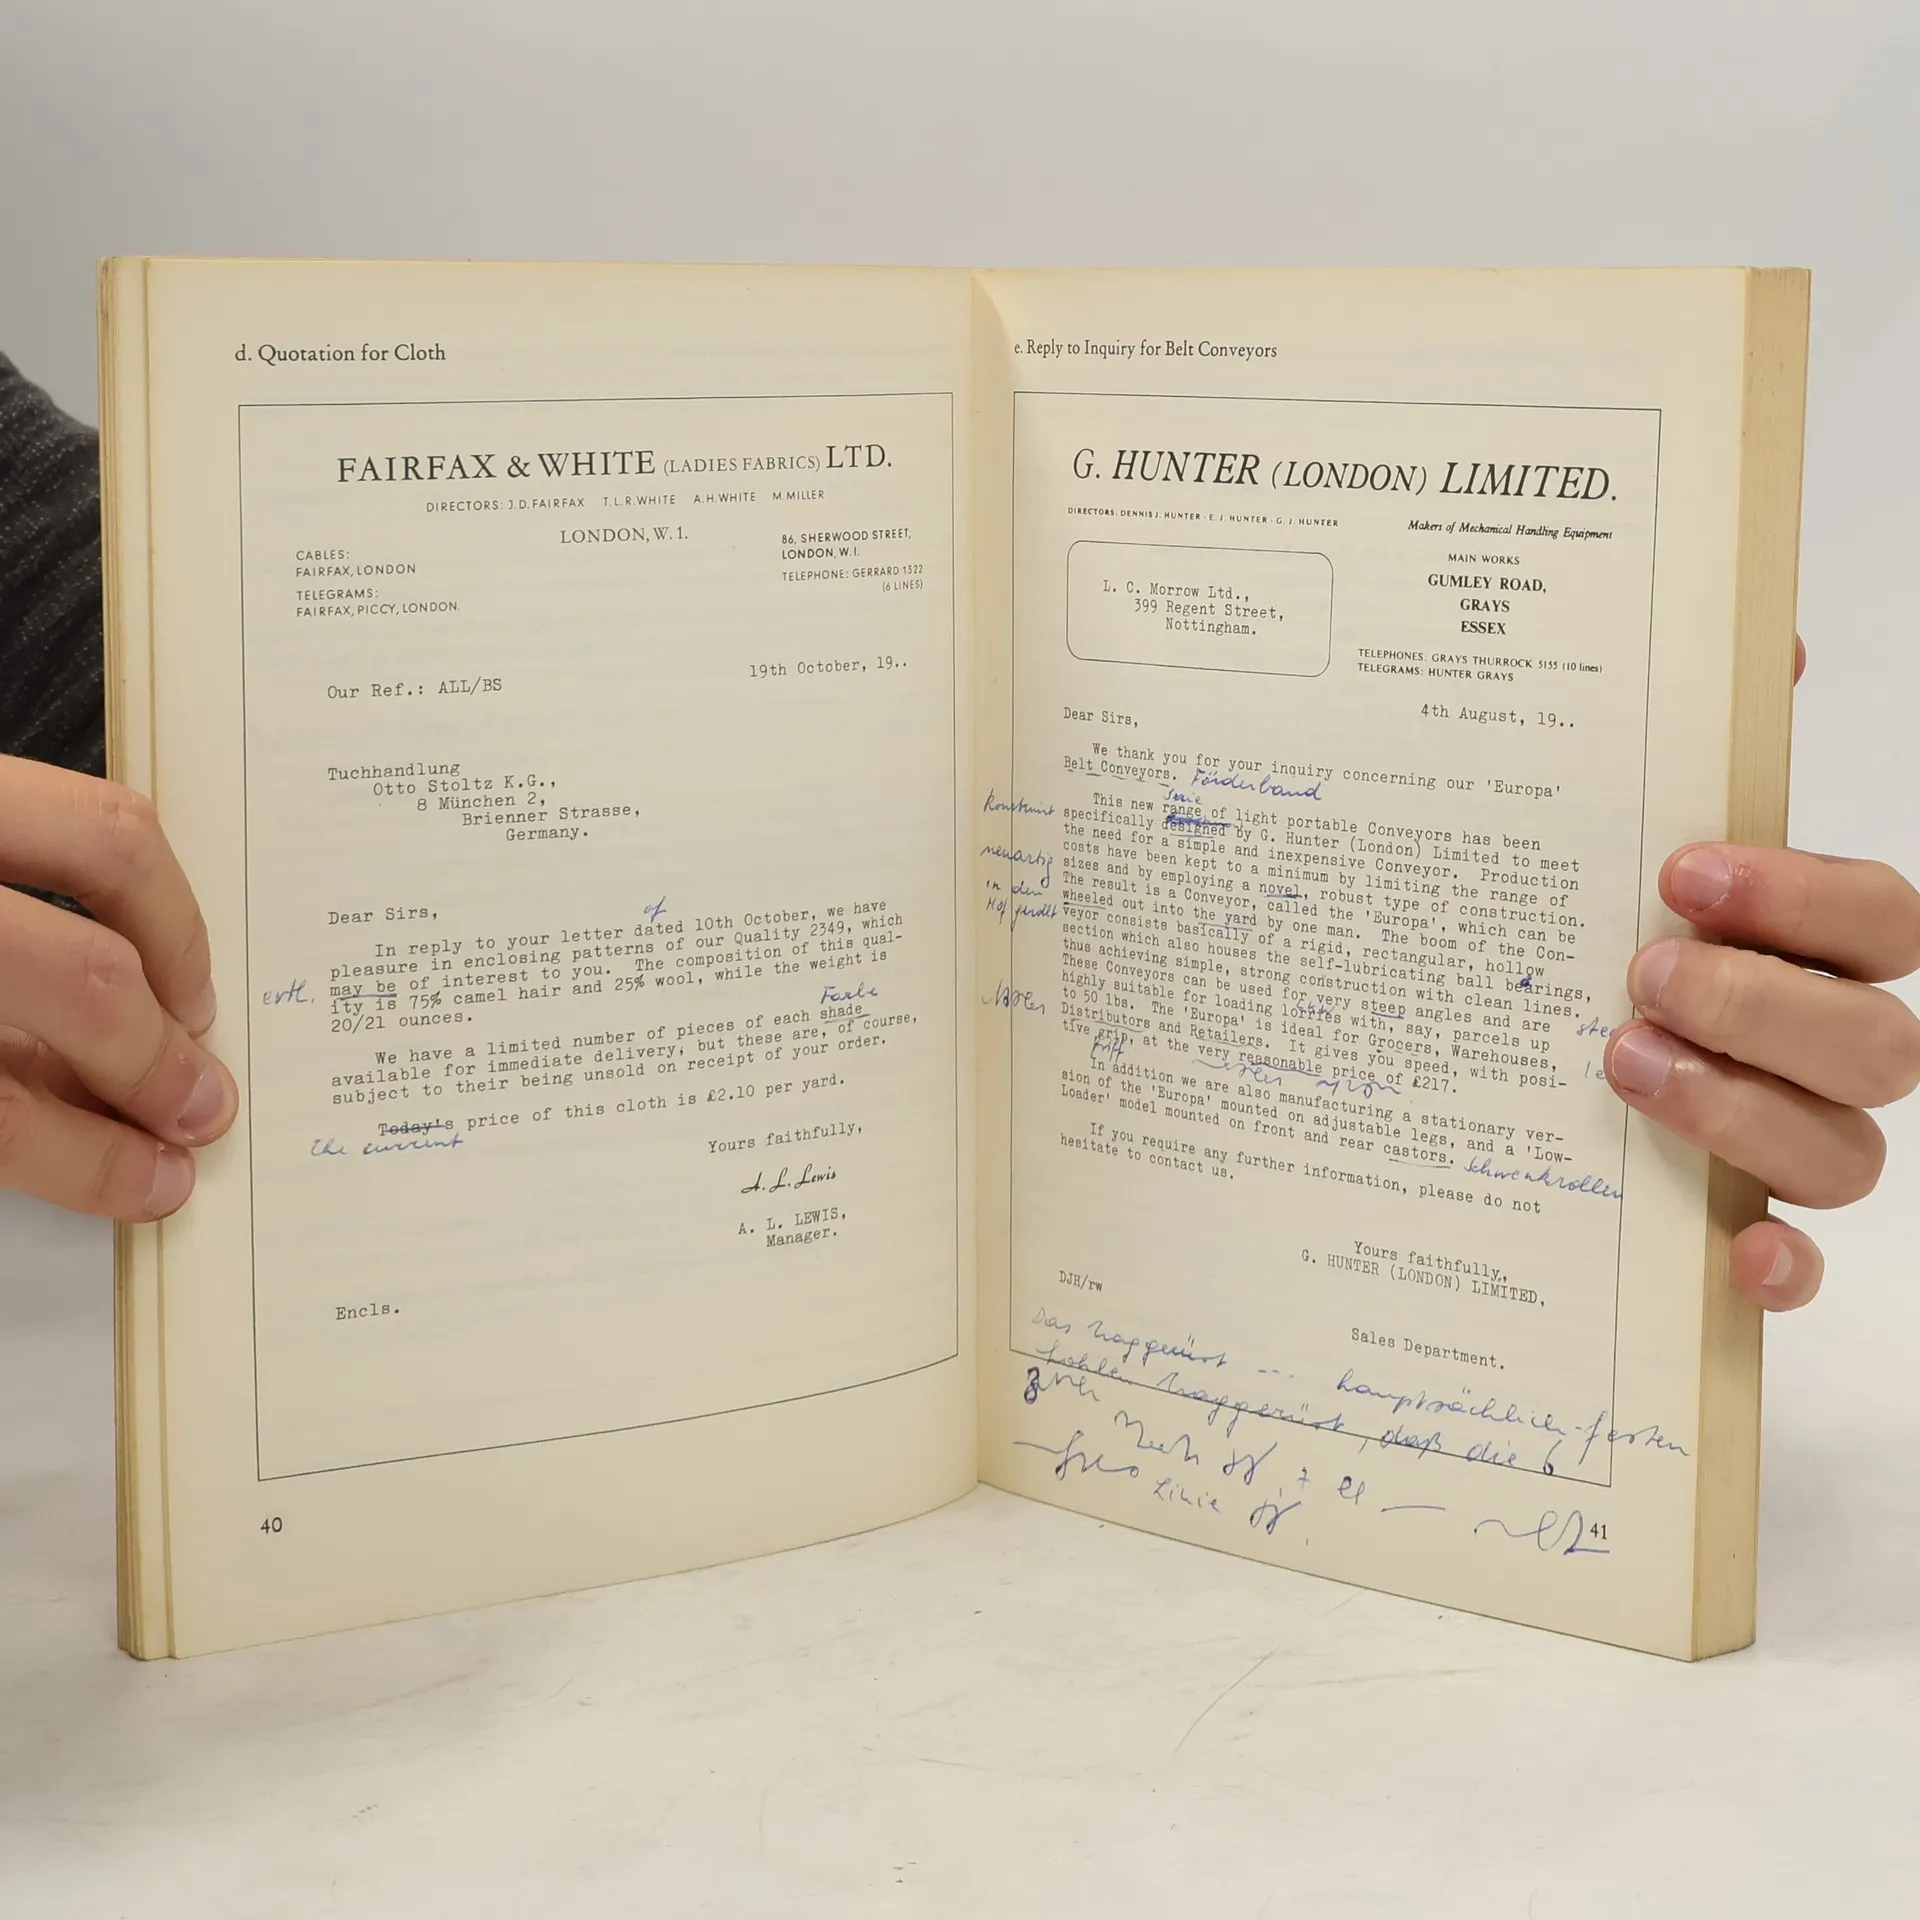 d. Quotation for Cloth
FAIRFAX & WHITE (LADIES FABRICS) LTD.
DIRECTORS: J. D. FAIRFAX T. L. R. WHITE A. H. WHITE M. MILLER
LONDON, W. 1.
CABLES:
FAIRFAX, LONDON
TELEGRAMS:
FAIRFAX, PICCY, LONDON.
86, SHERWOOD STREET,
LONDON, W.I.
TELEPHONE: GERRARD 1322
(6 LINES)
19th October, 19..
Our Ref.: ALL/BS
Tuchhandlung
Otto Stoltz K.G.,
8 München 2,
Brienner Strasse,
Germany.
Dear Sirs,
of
In reply to your letter dated 10th October, we have
pleasure in enclosing patterns of our Quality 2349, which
evtl. may be of interest to you. The composition of this qual-
ity is 75% camel hair and 25% wool, while the weight is
20/21 ounces.
Farbe
We have a limited number of pieces of each shade
available for immediate delivery, but these are, of course,
subject to their being unsold on receipt of your order.
Today's price of this cloth is £2.10 per yard.
the current
Yours faithfully,
A. L. Lewis
A. L. LEWIS,
Manager.
Encls.
40
e. Reply to Inquiry for Belt Conveyors
G. HUNTER (LONDON) LIMITED.
DIRECTORS: DENNIS J. HUNTER · E. J. HUNTER · G. J. HUNTER
Makers of Mechanical Handling Equipment
MAIN WORKS
GUMLEY ROAD,
GRAYS
ESSEX
L. C. Morrow Ltd.,
399 Regent Street,
Nottingham.
TELEPHONES: GRAYS THURROCK 5155 (10 lines)
TELEGRAMS: HUNTER GRAYS
4th August, 19..
Dear Sirs,
We thank you for your inquiry concerning our 'Europa'
Belt Conveyors. Förderband
Serie
This new range of light portable Conveyors has been
specifically designed by G. Hunter (London) Limited to meet
the need for a simple and inexpensive Conveyor. Production
costs have been kept to a minimum by limiting the range of
neuartig sizes and by employing a novel, robust type of construction.
in den The result is a Conveyor, called the 'Europa', which can be
Hof gerollt wheeled out into the yard by one man. The boom of the Con-
veyor consists basically of a rigid, rectangular, hollow
section which also houses the self-lubricating ball bearings,
thus achieving simple, strong construction with clean lines.
These Conveyors can be used for very steep angles and are
highly suitable for loading lorries with, say, parcels up
to 50 lbs. The 'Europa' is ideal for Grocers, Warehouses,
Distributors and Retailers. It gives you speed, with posi-
tive grip, at the very reasonable price of £217.
In addition we are also manufacturing a stationary ver-
sion of the 'Europa' mounted on adjustable legs, and a 'Low-
Loader' model mounted on front and rear castors. Schwenkrollen
If you require any further information, please do not
hesitate to contact us.
Yours faithfully,
G. HUNTER (LONDON) LIMITED,
DJH/rw
Sales Department.
Das Traggerüst --- hauptsächlich festen
hohlen Traggerüst, daß die
Linie
41